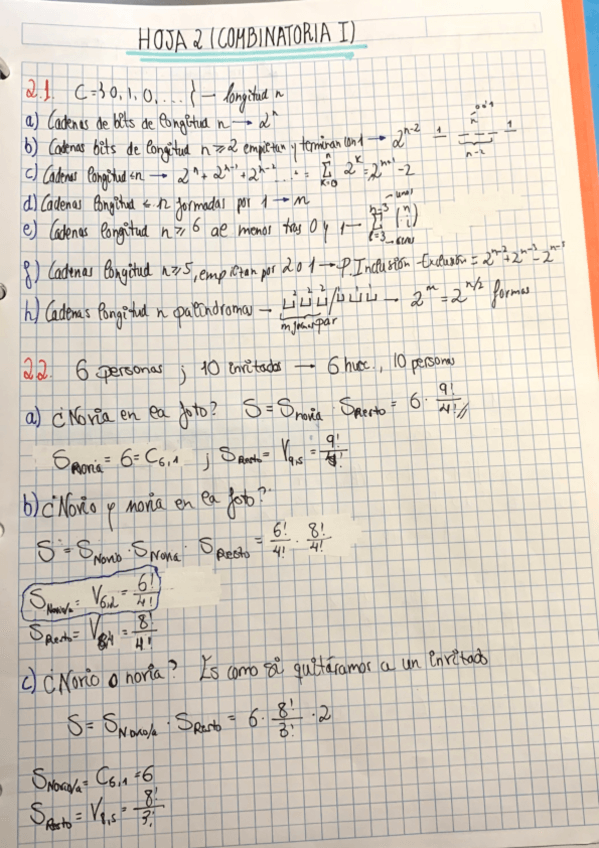 HOJA 2 (COMBINATORIA I)
2.1. C = { 0, 1, 0, ... } → longitud n
a) Cadenas de bits de longitud n → 2^n
b) Cadenas bits de longitud n ≥ 2 empiezan y terminan con 1 → 2^{n-2} 1 _ _ _ _ 1
n-2
c) Cadenas longitud ≤ n → 2^n + 2^{n-1} + 2^{n-2} ... = Σ_{k=0}^{n} 2^k = 2^{n+1} - 2
d) Cadenas longitud ≤ n formadas por 1 → n
e) Cadenas longitud n ≥ 6 al menos tres 0 y 1 → Σ_{i=3}^{n-3} (n i)
f) Cadenas longitud n ≥ 5, empiezan por 2 0 1 → P. Inclusión-Exclusión = 2^{n-2} + 2^{n-3} - 2^{n-5}
h) Cadenas longitud n palíndromas → 2 2 2 / 1 1 1 → 2^m = 2^{n/2} formas
2.2. 6 personas ; 10 invitados → 6 huec., 10 personas
a) ¿Novia en la foto? S = S_novia · S_Resto = 6 · 9!/4!
S_Novia = 6 = C_{6,1} ; S_Resto = V_{9,5} = 9!/4!
b) ¿Novio y novia en la foto?
S = S_Novio · S_Novia · S_Resto = 6!/4! · 8!/4!
S_Novio/a = V_{6,2} = 6!/4!
S_Resto = V_{8,4} = 8!/4!
c) ¿Novio o novia? Es como si quitáramos a un invitado
S = S_Novio/a · S_Resto = 6 · 8!/3! · 2
S_Novio/a = C_{6,1} = 6
S_Resto = V_{8,5} = 8!/3!